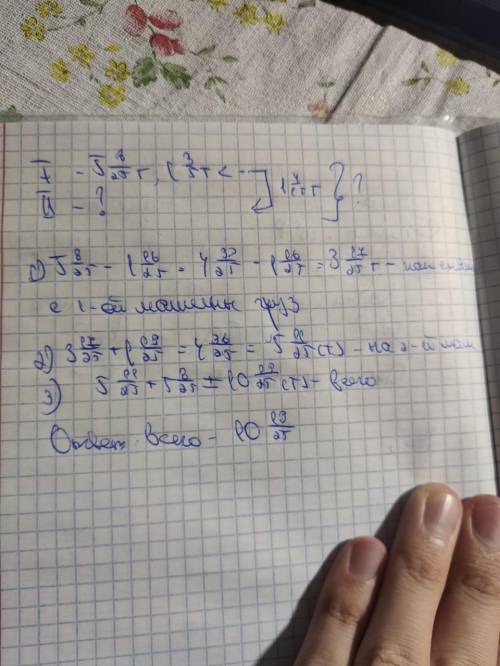 I - 5 8/25 т, 1 3/5 т < 
II - ? } ?
1) 5 8/25 - 1 16/25 = 4 33/25 - 1 16/25 = 3 17/25 т -
с 1-ой машины груз
2) 3 17/25 + 1 19/25 = 4 36/25 = 5 11/25 (т) - на 2-ой маш
3) 5 11/25 + 5 8/25 = 10 19/25 (т) - всего
Ответ: всего - 10 19/25